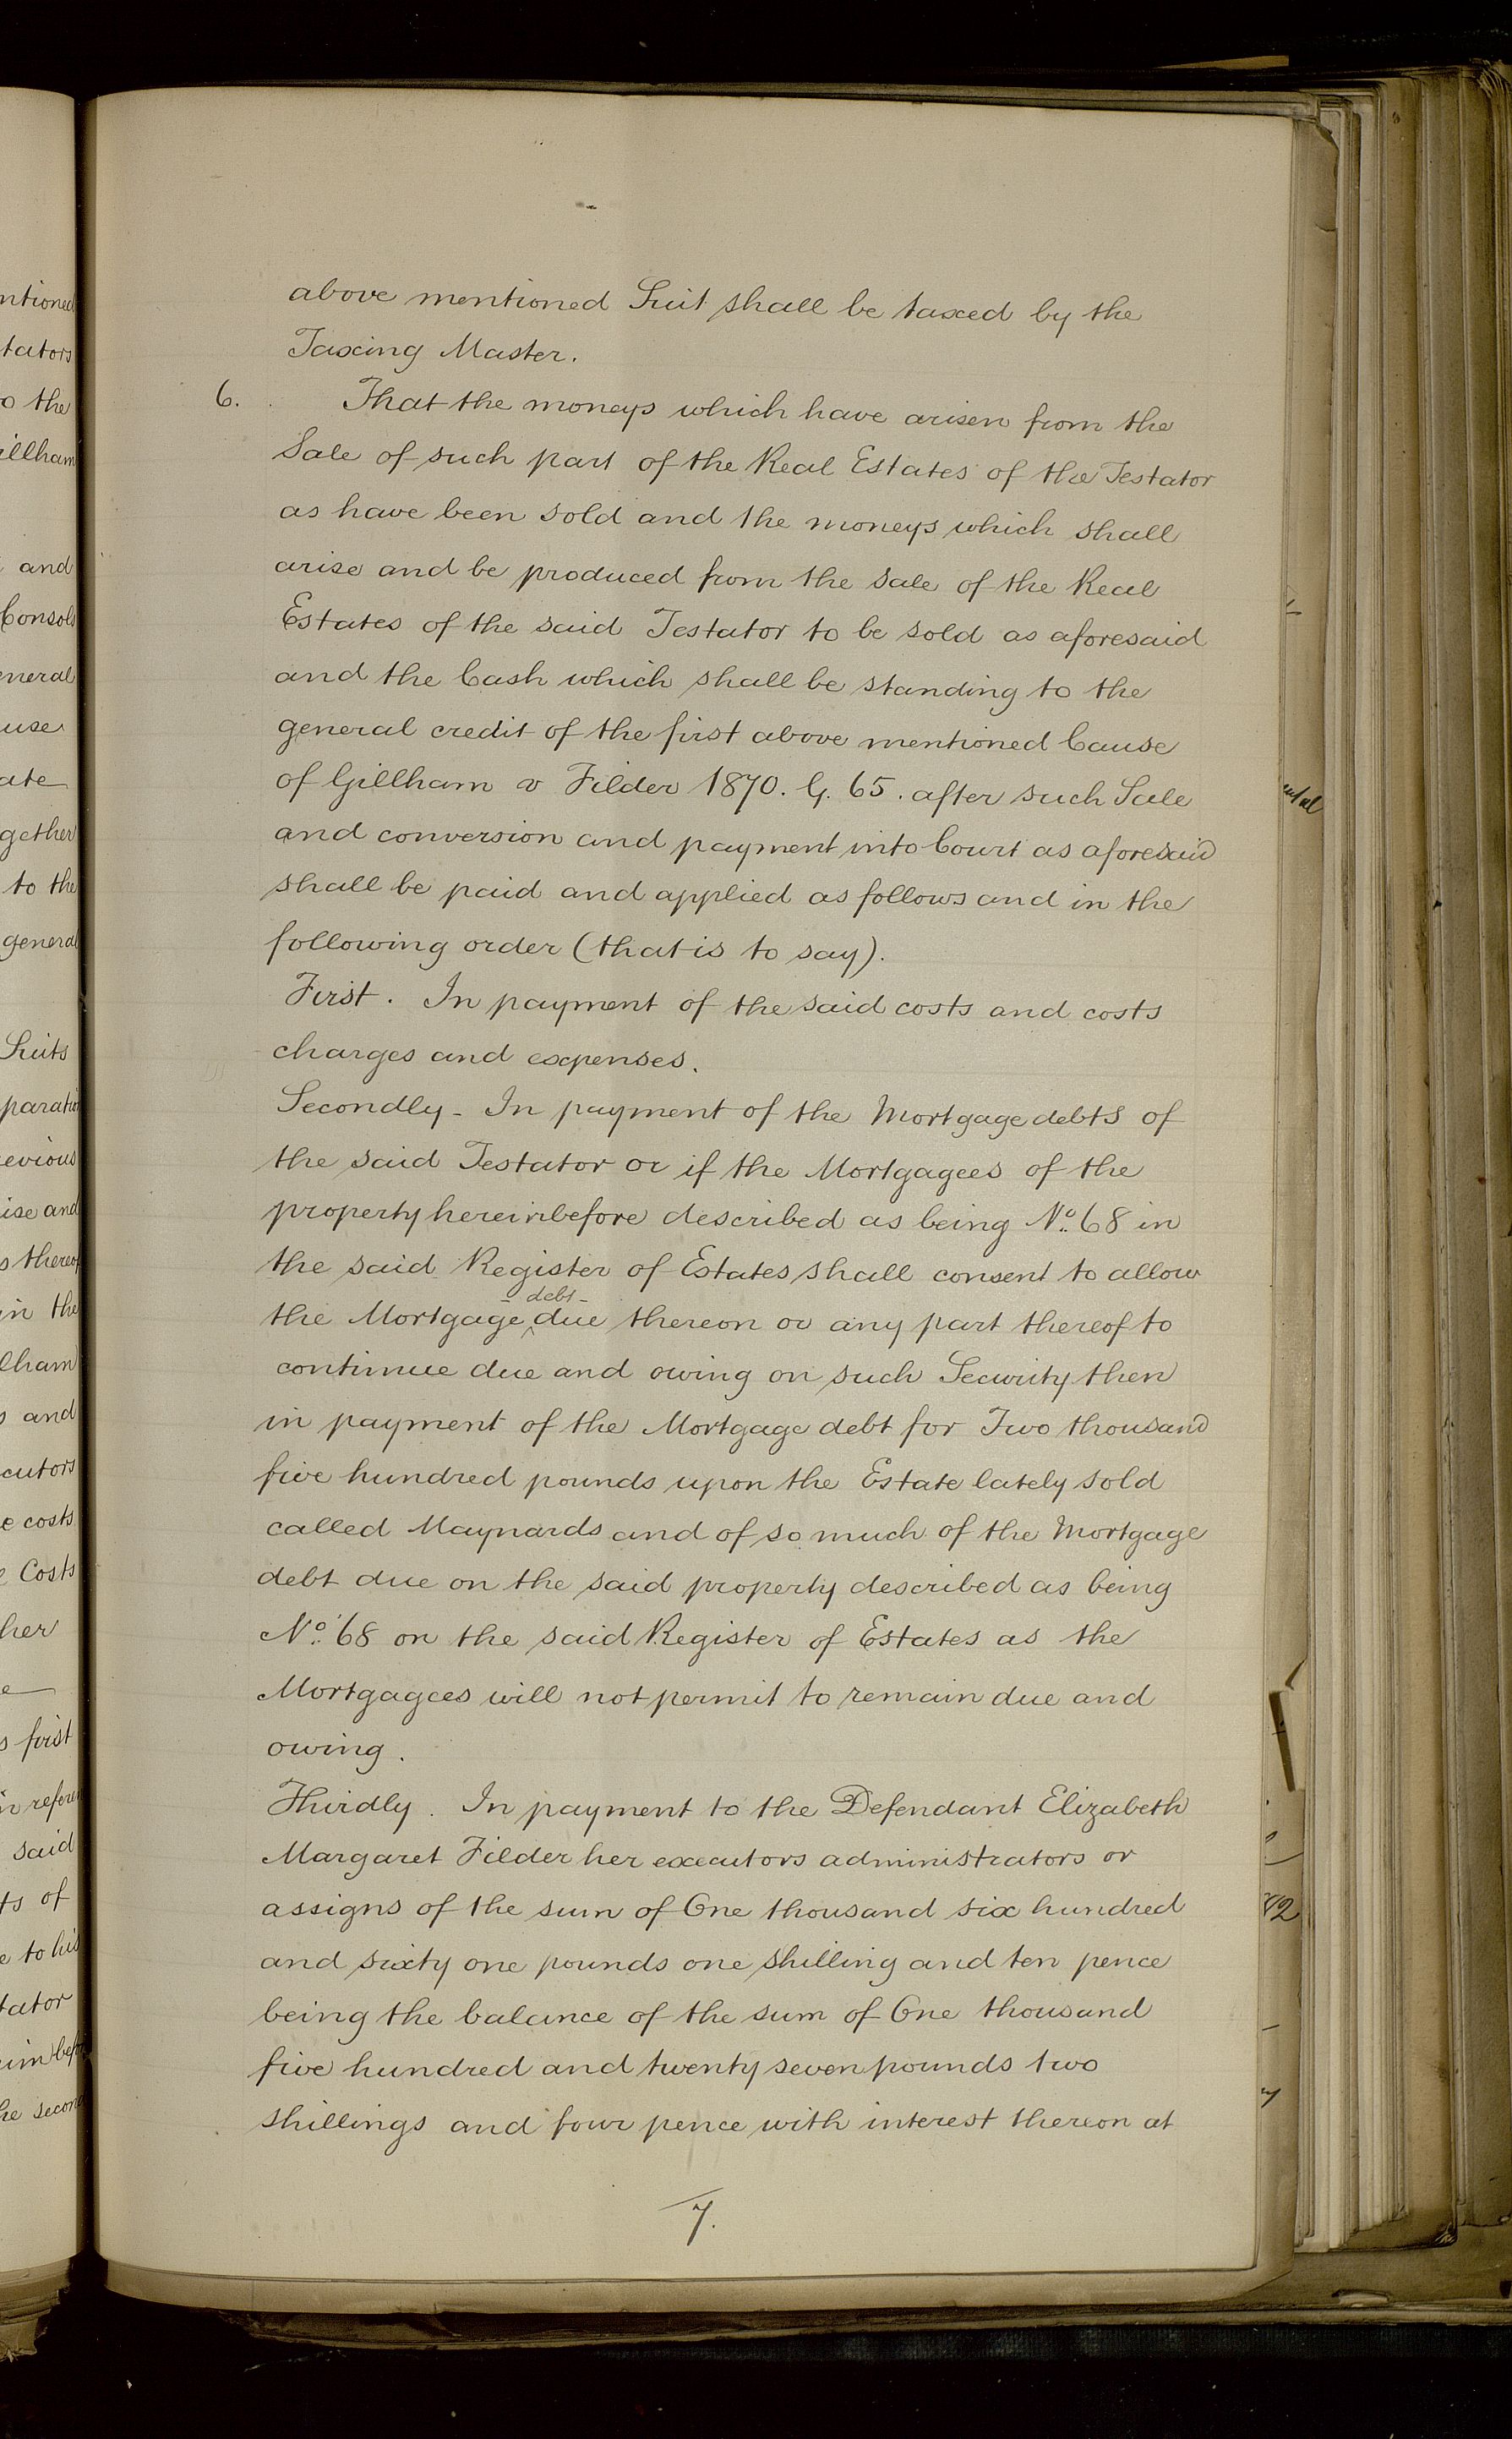 above mentioned Suit shall be taxed by the
Taxing Master.
6. That the moneys which have arisen from the
Sale of such part of the Real Estates of the Testator
as have been sold and the moneys which shall
arise and be produced from the sale of the Real
Estates of the said Testator to be sold as aforesaid
and the Cash which shall be standing to the
general credit of the first above mentioned Cause
of Gillham v Filder 1870. G. 65. after such Sale
and conversion and payment into Court as aforesaid
shall be paid and applied as follows and in the
following order (that is to say).
First. In payment of the said costs and costs
charges and expenses.
Secondly - In payment of the Mortgage debts of
the said Testator or if the Mortgagees of the
property hereinbefore described as being No. 68 in
the said Register of Estates shall consent to allow
the Mortgage debt due thereon or any part thereof to
continue due and owing on such Security then
in payment of the Mortgage debt for Two thousand
five hundred pounds upon the Estate lately sold
called Maynards and of so much of the Mortgage
debt due on the said property described as being
No. 68 on the said Register of Estates as the
Mortgagees will not permit to remain due and
owing.
Thirdly. In payment to the Defendant Elizabeth
Margaret Filder her executors administrators or
assigns of the sum of One thousand six hundred
and sixty one pounds one shilling and ten pence
being the balance of the sum of One thousand
five hundred and twenty seven pounds two
shillings and four pence with interest thereon at
7.